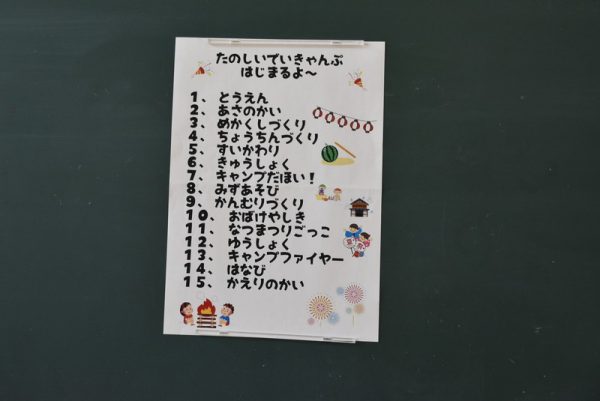 たのしいでいきゃんぷ
はじまるよ～
1、 とうえん
2、 あさのかい
3、 めかくしづくり
4、 ちょうちんづくり
5、 すいかわり
6、 きゅうしょく
7、 キャンプだほい！
8、 みずあそび
9、 かんむりづくり
10、 おばけやしき
11、 なつまつりごっこ
12、 ゆうしょく
13、 キャンプファイヤー
14、 はなび
15、 かえりのかい